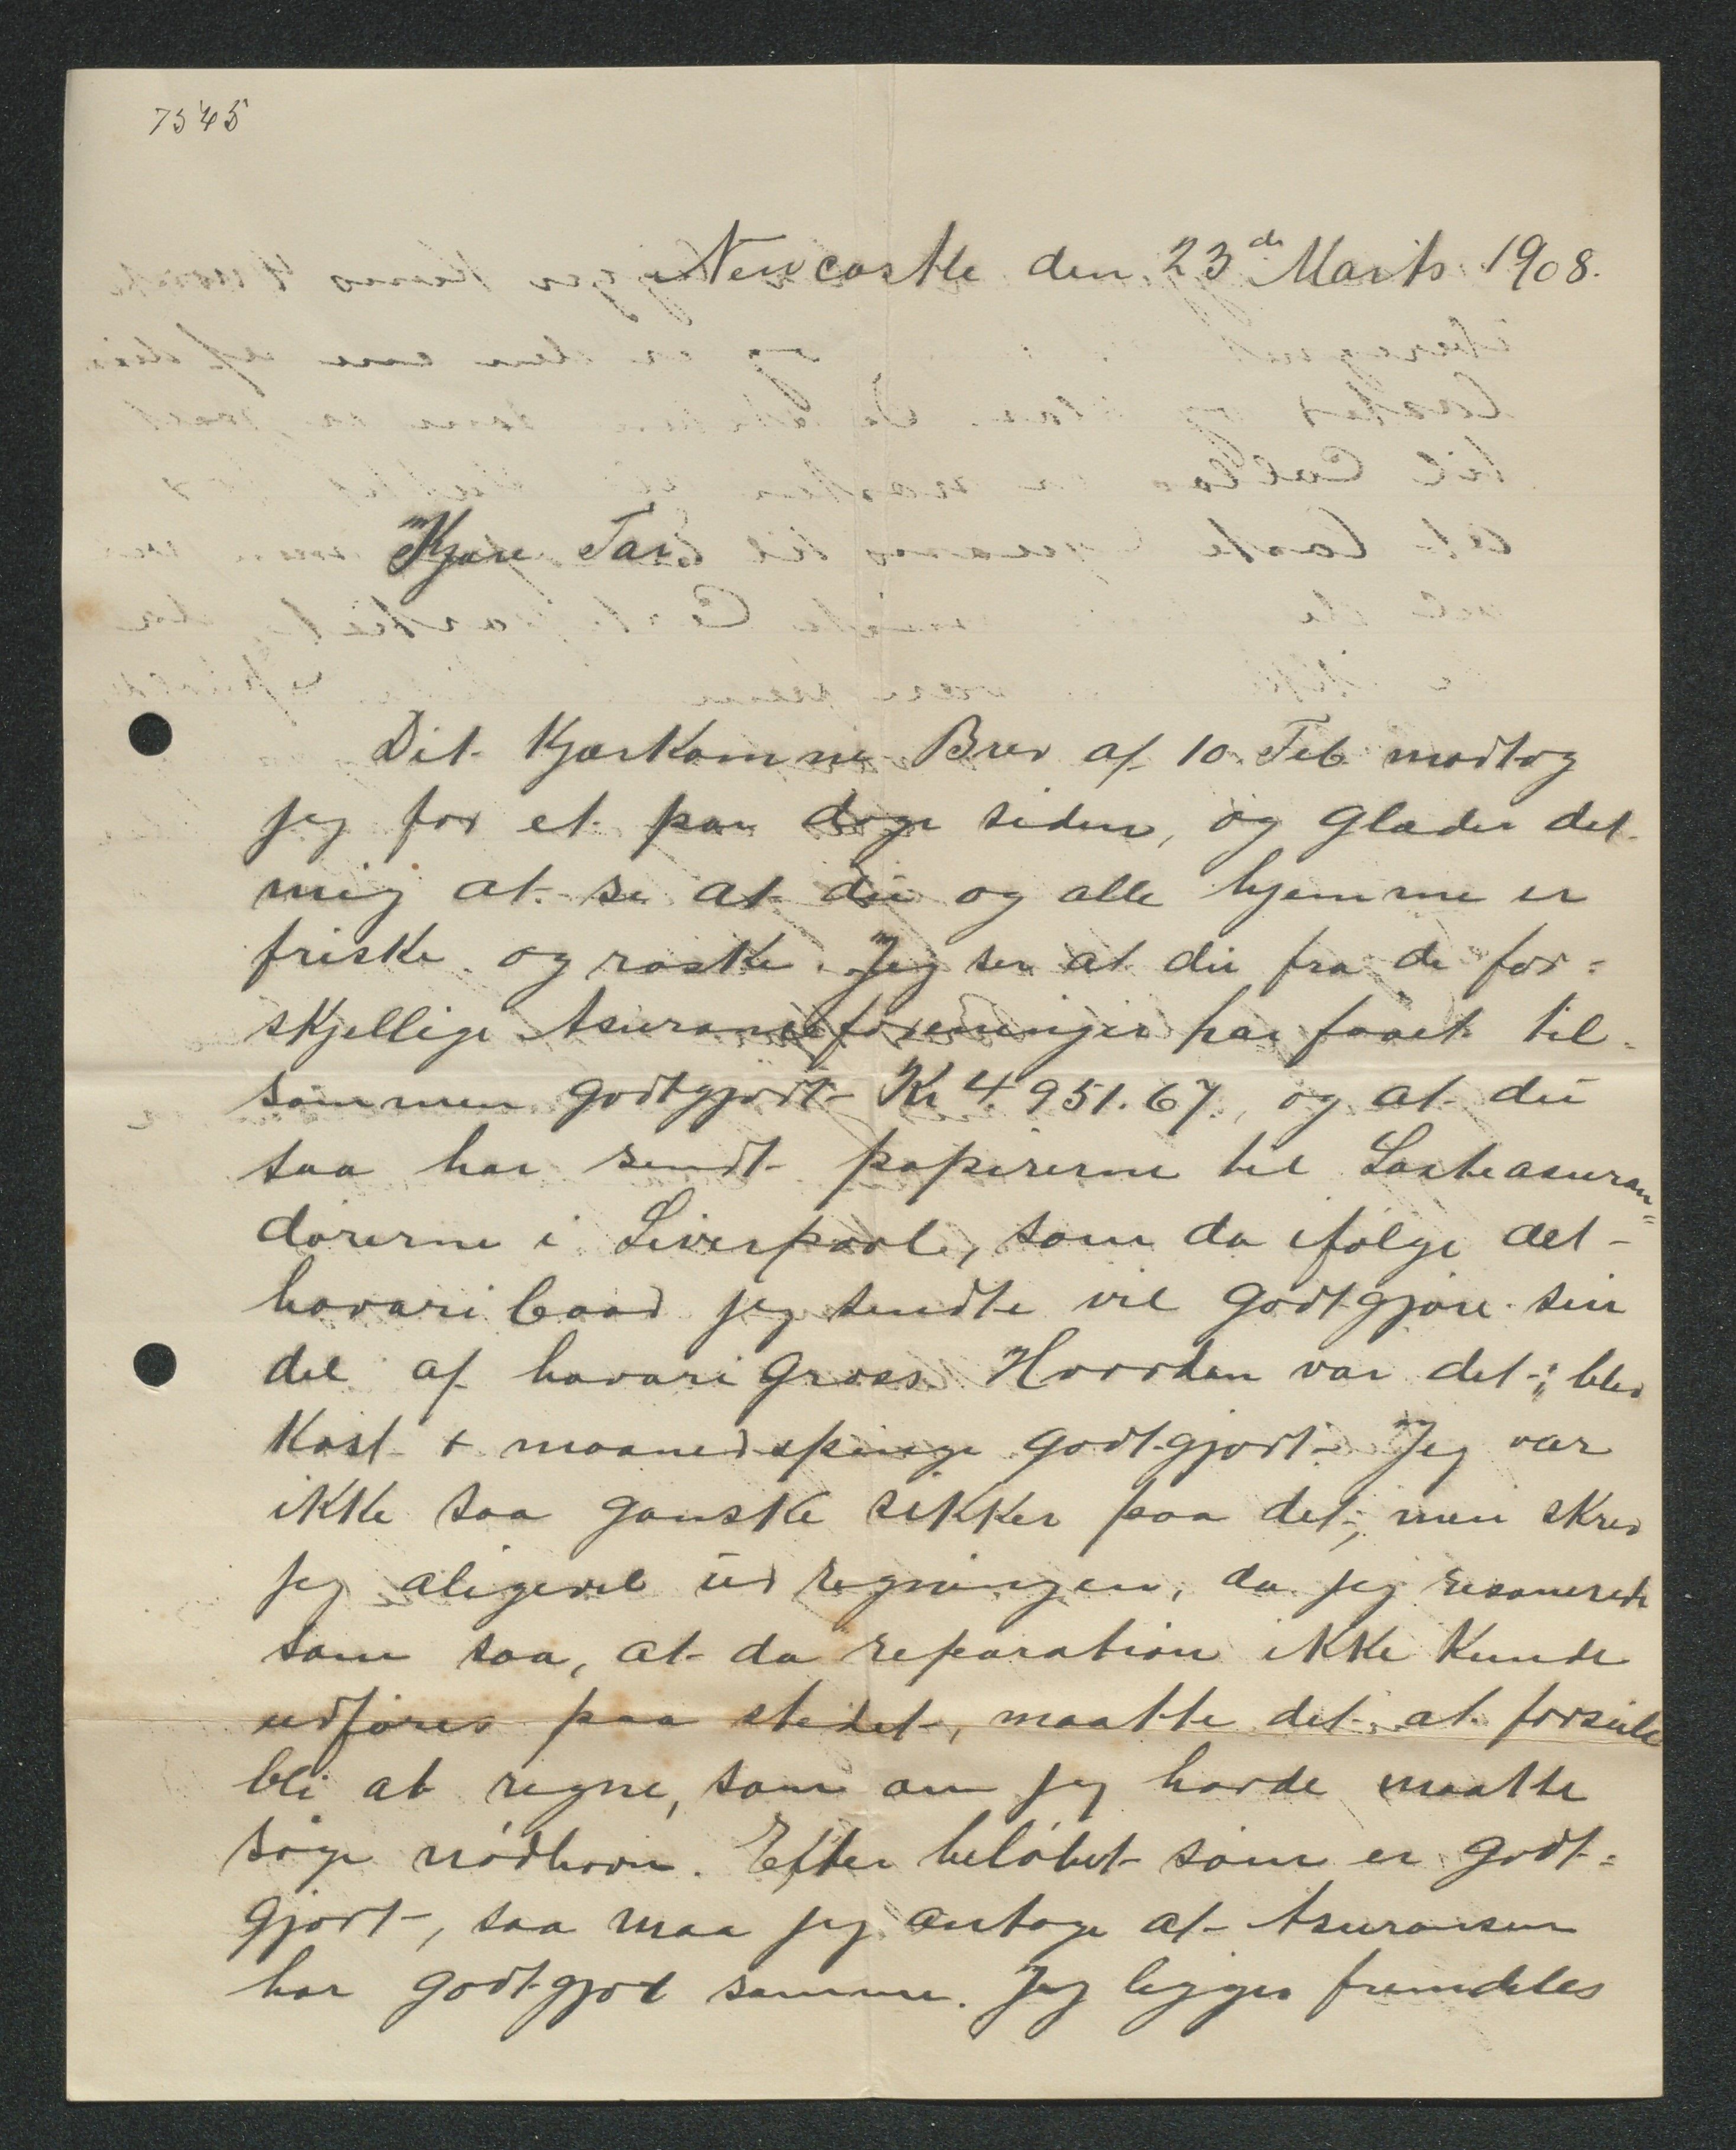 7545
Newcastle den 23de Marts 1908.
Kjære Far.
Dit Kjærkomne Brev af 10. Feb modtog
jeg for et par dage siden, og glæder det
mig at se at du og alle hjemme er
friske og raske. Jeg ser at du fra de for=
skjellige Asuranceforeninger har faaet til=
sammen godtgjort Kr 4.951.67., og at du
saa har sendt papirerne til Lasteasuran=
dørerne i Liverpool, som da ifølge det
havaribaand jeg sendte vil godtgjøre sin
del af havari Gross. Hvordan var det; blev
Kost + maanedspenge godtgjort. Jeg var
ikke saa ganske sikker paa det, men skrev
jeg aligevel ud regningen, da jeg resonerede
som saa, at da reparation ikke kunde
udføres paa stedet, maatte det at forseile
bli at regne, som om jeg havde maatte
søge nødhavn. Efter beløbet som er godt=
gjort, saa maa jeg antage at Asuransen
har godtgjot samme. Jeg ligger fremdeles